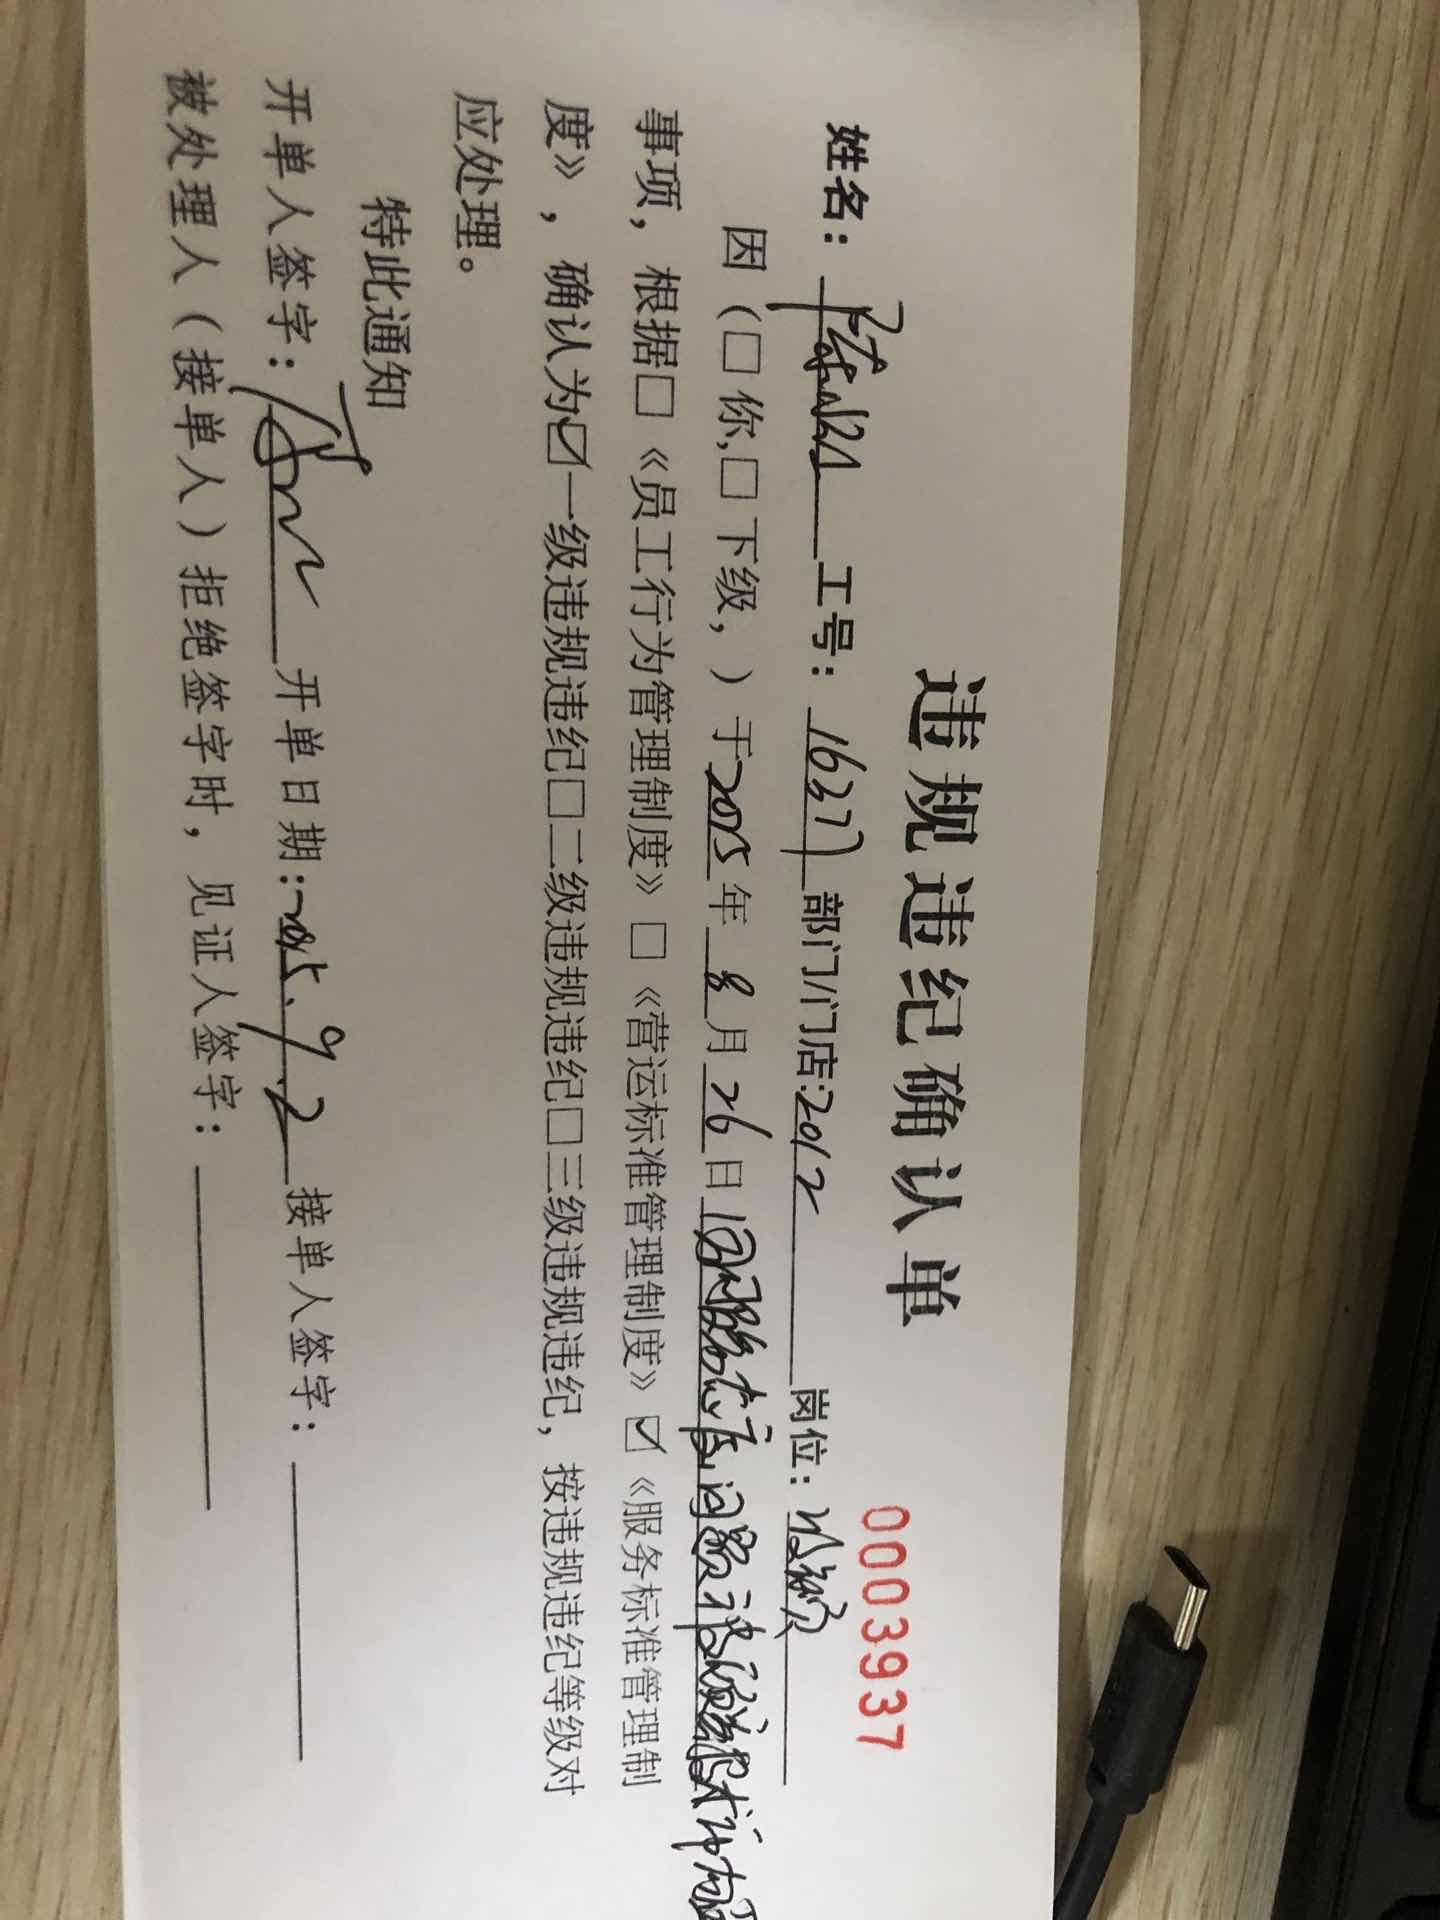 违规违纪确认单
0003937
姓名： 工号：1637 部门/门店:2012 岗位：
因（□你,□下级，）于2025年8月26日 服务态度问题被
事项，根据□《员工行为管理制度》□《营运标准管理制度》☑《服务标准管理制
度》，确认为☑一级违规违纪□二级违规违纪□三级违规违纪，按违规违纪等级对
应处理。
特此通知
开单人签字： 开单日期:2025.9.2 接单人签字：
被处理人（接单人）拒绝签字时，见证人签字：